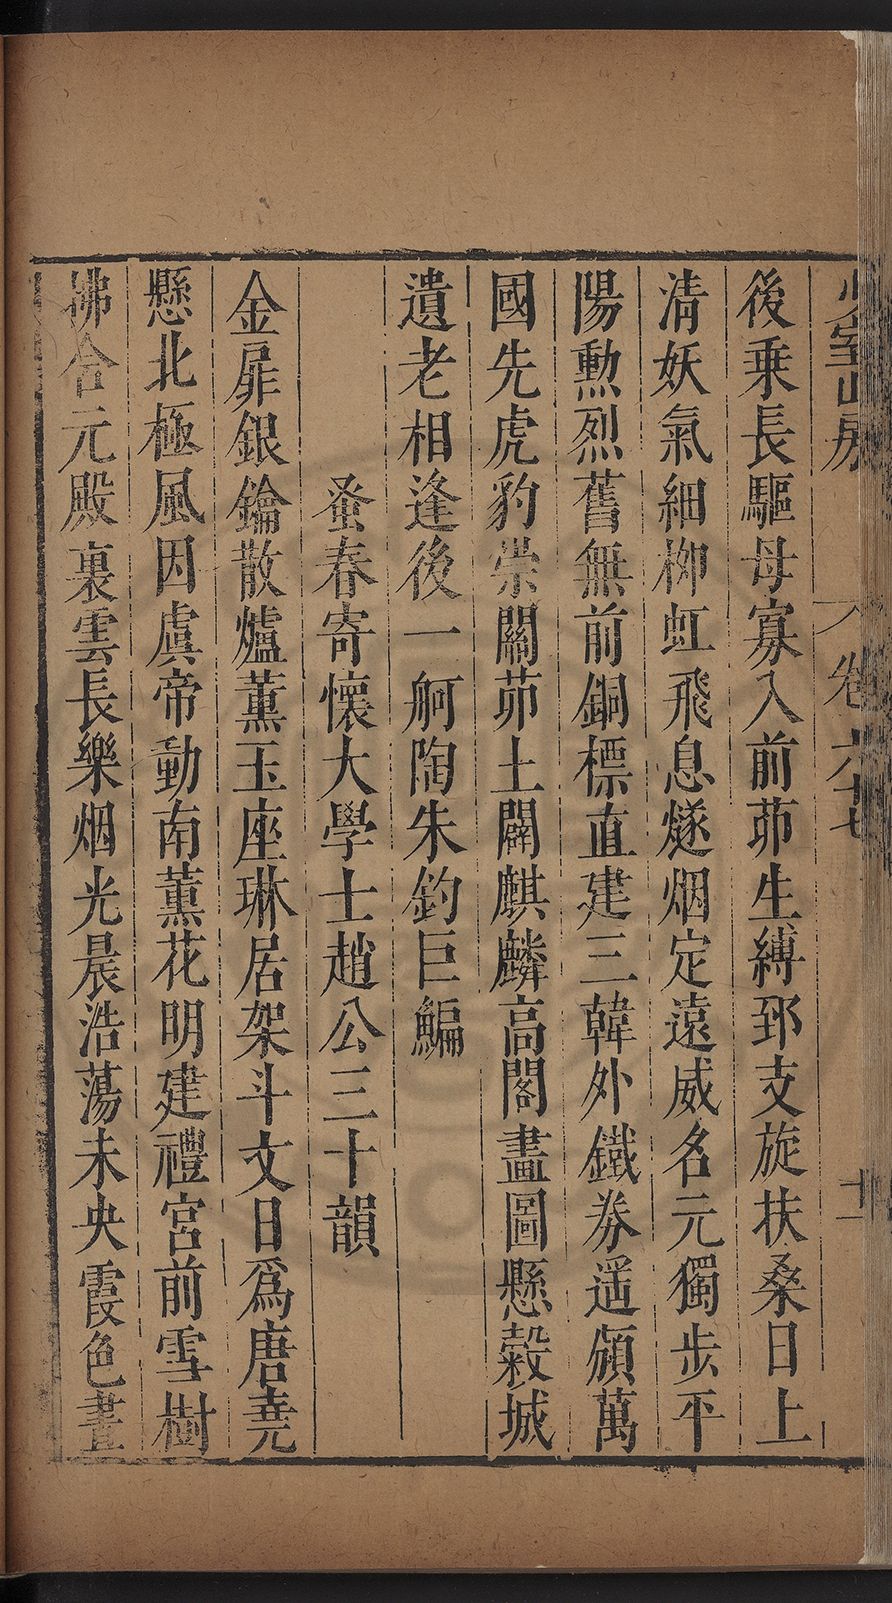 少室山房
卷六十七
十一
後乗長驅毋寡入前茆生縛郅支旋扶桑日上
清妖氣細柳虹飛息燧烟定遠威名元獨步平
陽勲烈舊無前銅標直建三韓外鐵券遥頒萬
國先虎豹崇關茆土闢麒麟高閣畫圖懸穀城
遺老相逢後一舸陶朱釣巨鯿
蚤春寄懷大學士趙公三十韻
金扉銀鑰散爐薰玉座琳居架斗文日爲唐堯
懸北極風因虞帝動南薰花明建禮宮前雪樹
拂含元殿裏雲長樂烟光晨浩蕩未央霞色晝